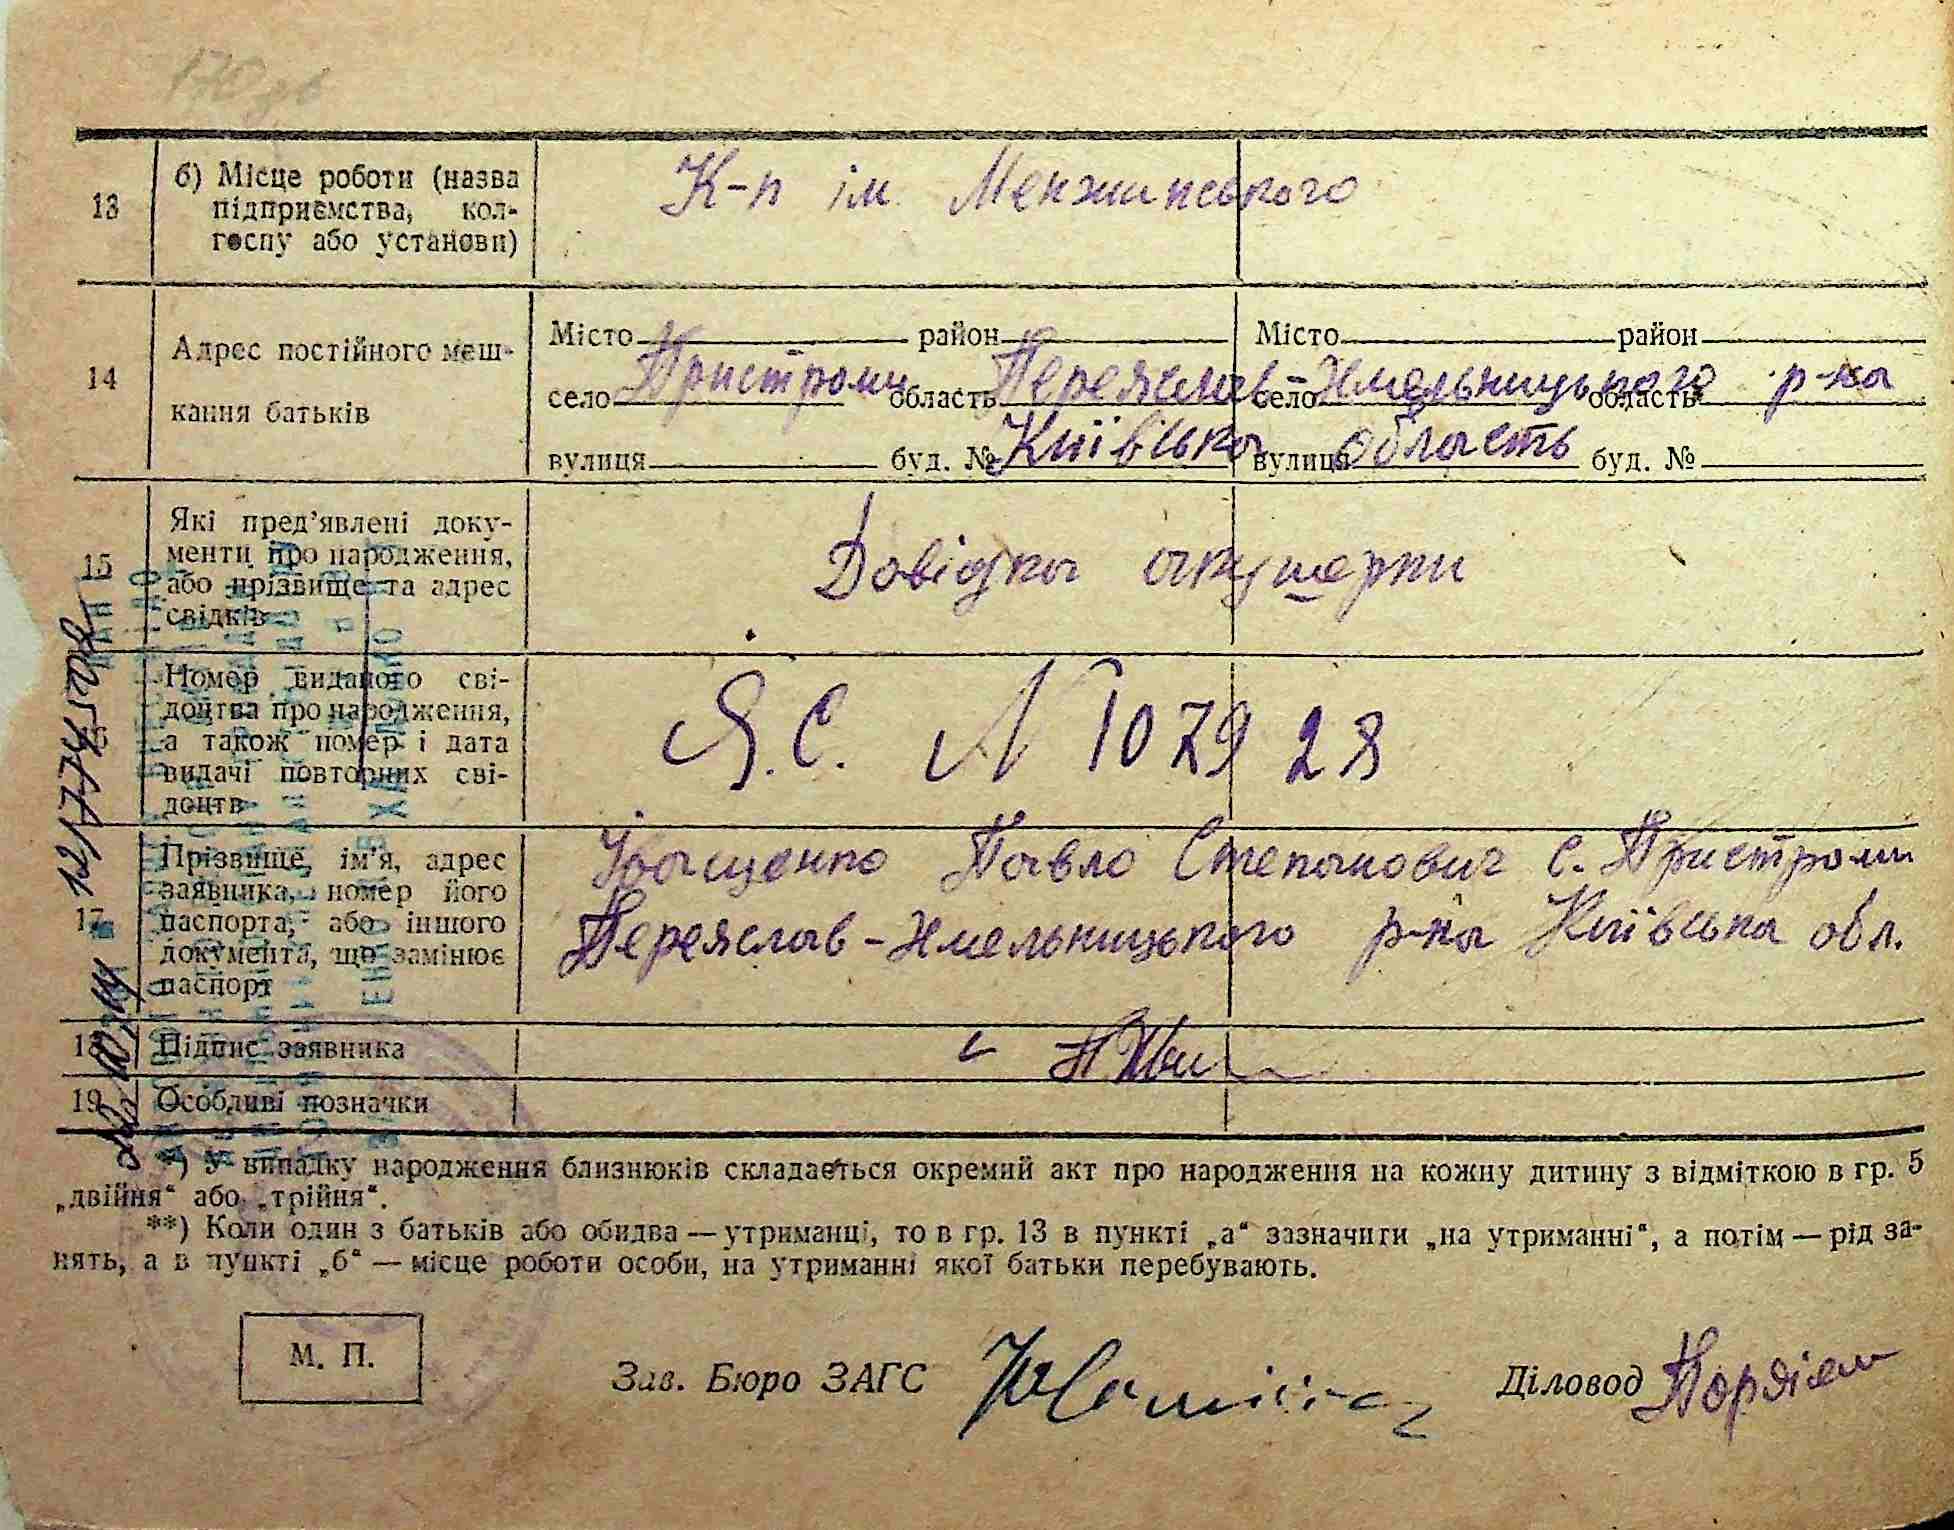 13 б) Місце роботи (назва
підприємства, кол-
госпу або установи)
К-п ім. Менжинського
14 Адрес постійного меш-
кання батьків
Місто район Місто район
село Пристроми область Переяслав-Хмельницького р-на село область
вулиця буд. № Київська область вулиця буд. №
15 Які пред'явлені доку-
менти про народження,
або прізвище та адрес
свідків
Довідка акушерки
Номер виданого сві-
доцтва про народження,
а також номер і дата
видачі повторних сві-
доцтв
Я.С. N 107928
17 Прізвище, ім'я, адрес
заявника, номер його
паспорта, або іншого
документа, що замінює
паспорт
Іващенко Павло Степанович с. Пристроми
Переяслав-Хмельницького р-на Київська обл.
18 Підпис заявника
19 Особливі позначки
*) У випадку народження близнюків складається окремий акт про народження на кожну дитину з відміткою в гр. 5
„двійня“ або „трійня“.
**) Коли один з батьків або обидва — утриманці, то в гр. 13 в пункті „а“ зазначити „на утриманні“, а потім — рід за-
нять, а в пункті „б“ — місце роботи особи, на утриманні якої батьки перебувають.
М. П.
Зав. Бюро ЗАГС
Діловод